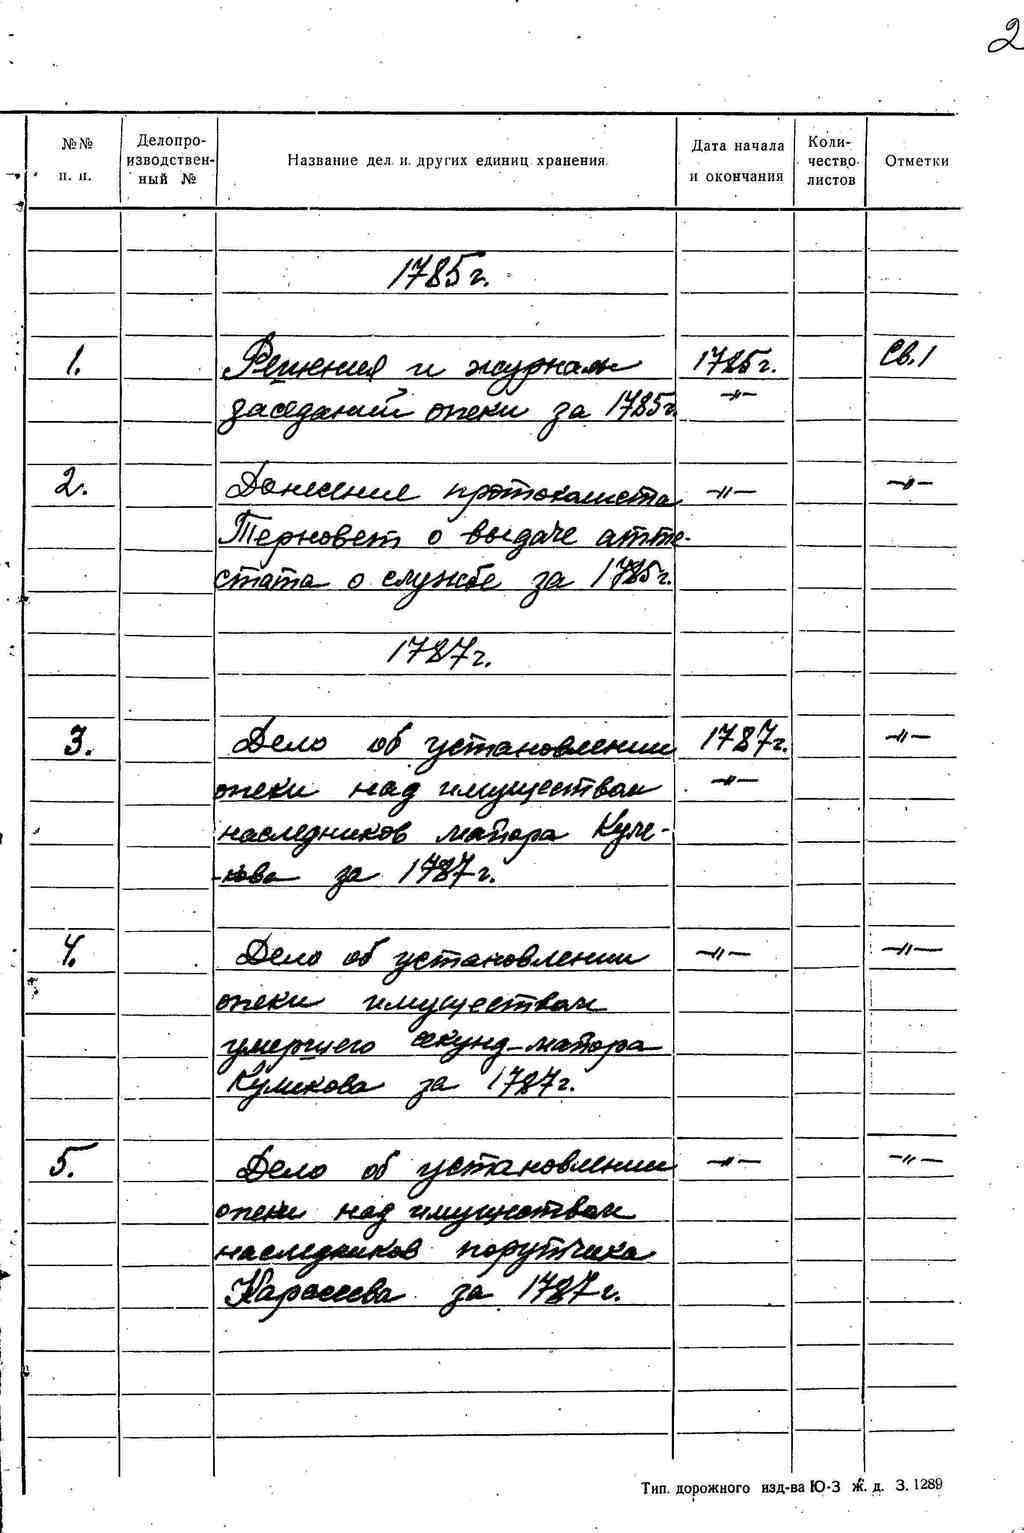 2
№№ п. п.
Делопро-
изводствен-
ный №
Название дел и других единиц хранения
Дата начала
и окончания
Коли-
чество
листов
Отметки
1785 г.
1. Решения и журналы 1785 г. Св. 1
заседаний опеки за 1785 г. -"-
2. Донесение протоколиста -"- -"-
Терновет о выдаче атте-
стата о службе за 1785 г.
1787 г.
3. Дело об установлении 1787 г. -"-
опеки над имуществом -"-
наследников майора Кули-
кова за 1787 г.
4. Дело об установлении -"- -"-
опеки имуществом
умершего секунд-майора
Куликова за 1787 г.
5. Дело об установлении -"- -"-
опеки над имуществом
наследников порутчика
Карасева за 1787 г.
Тип. дорожного изд-ва Ю-З ж. д. З. 1289